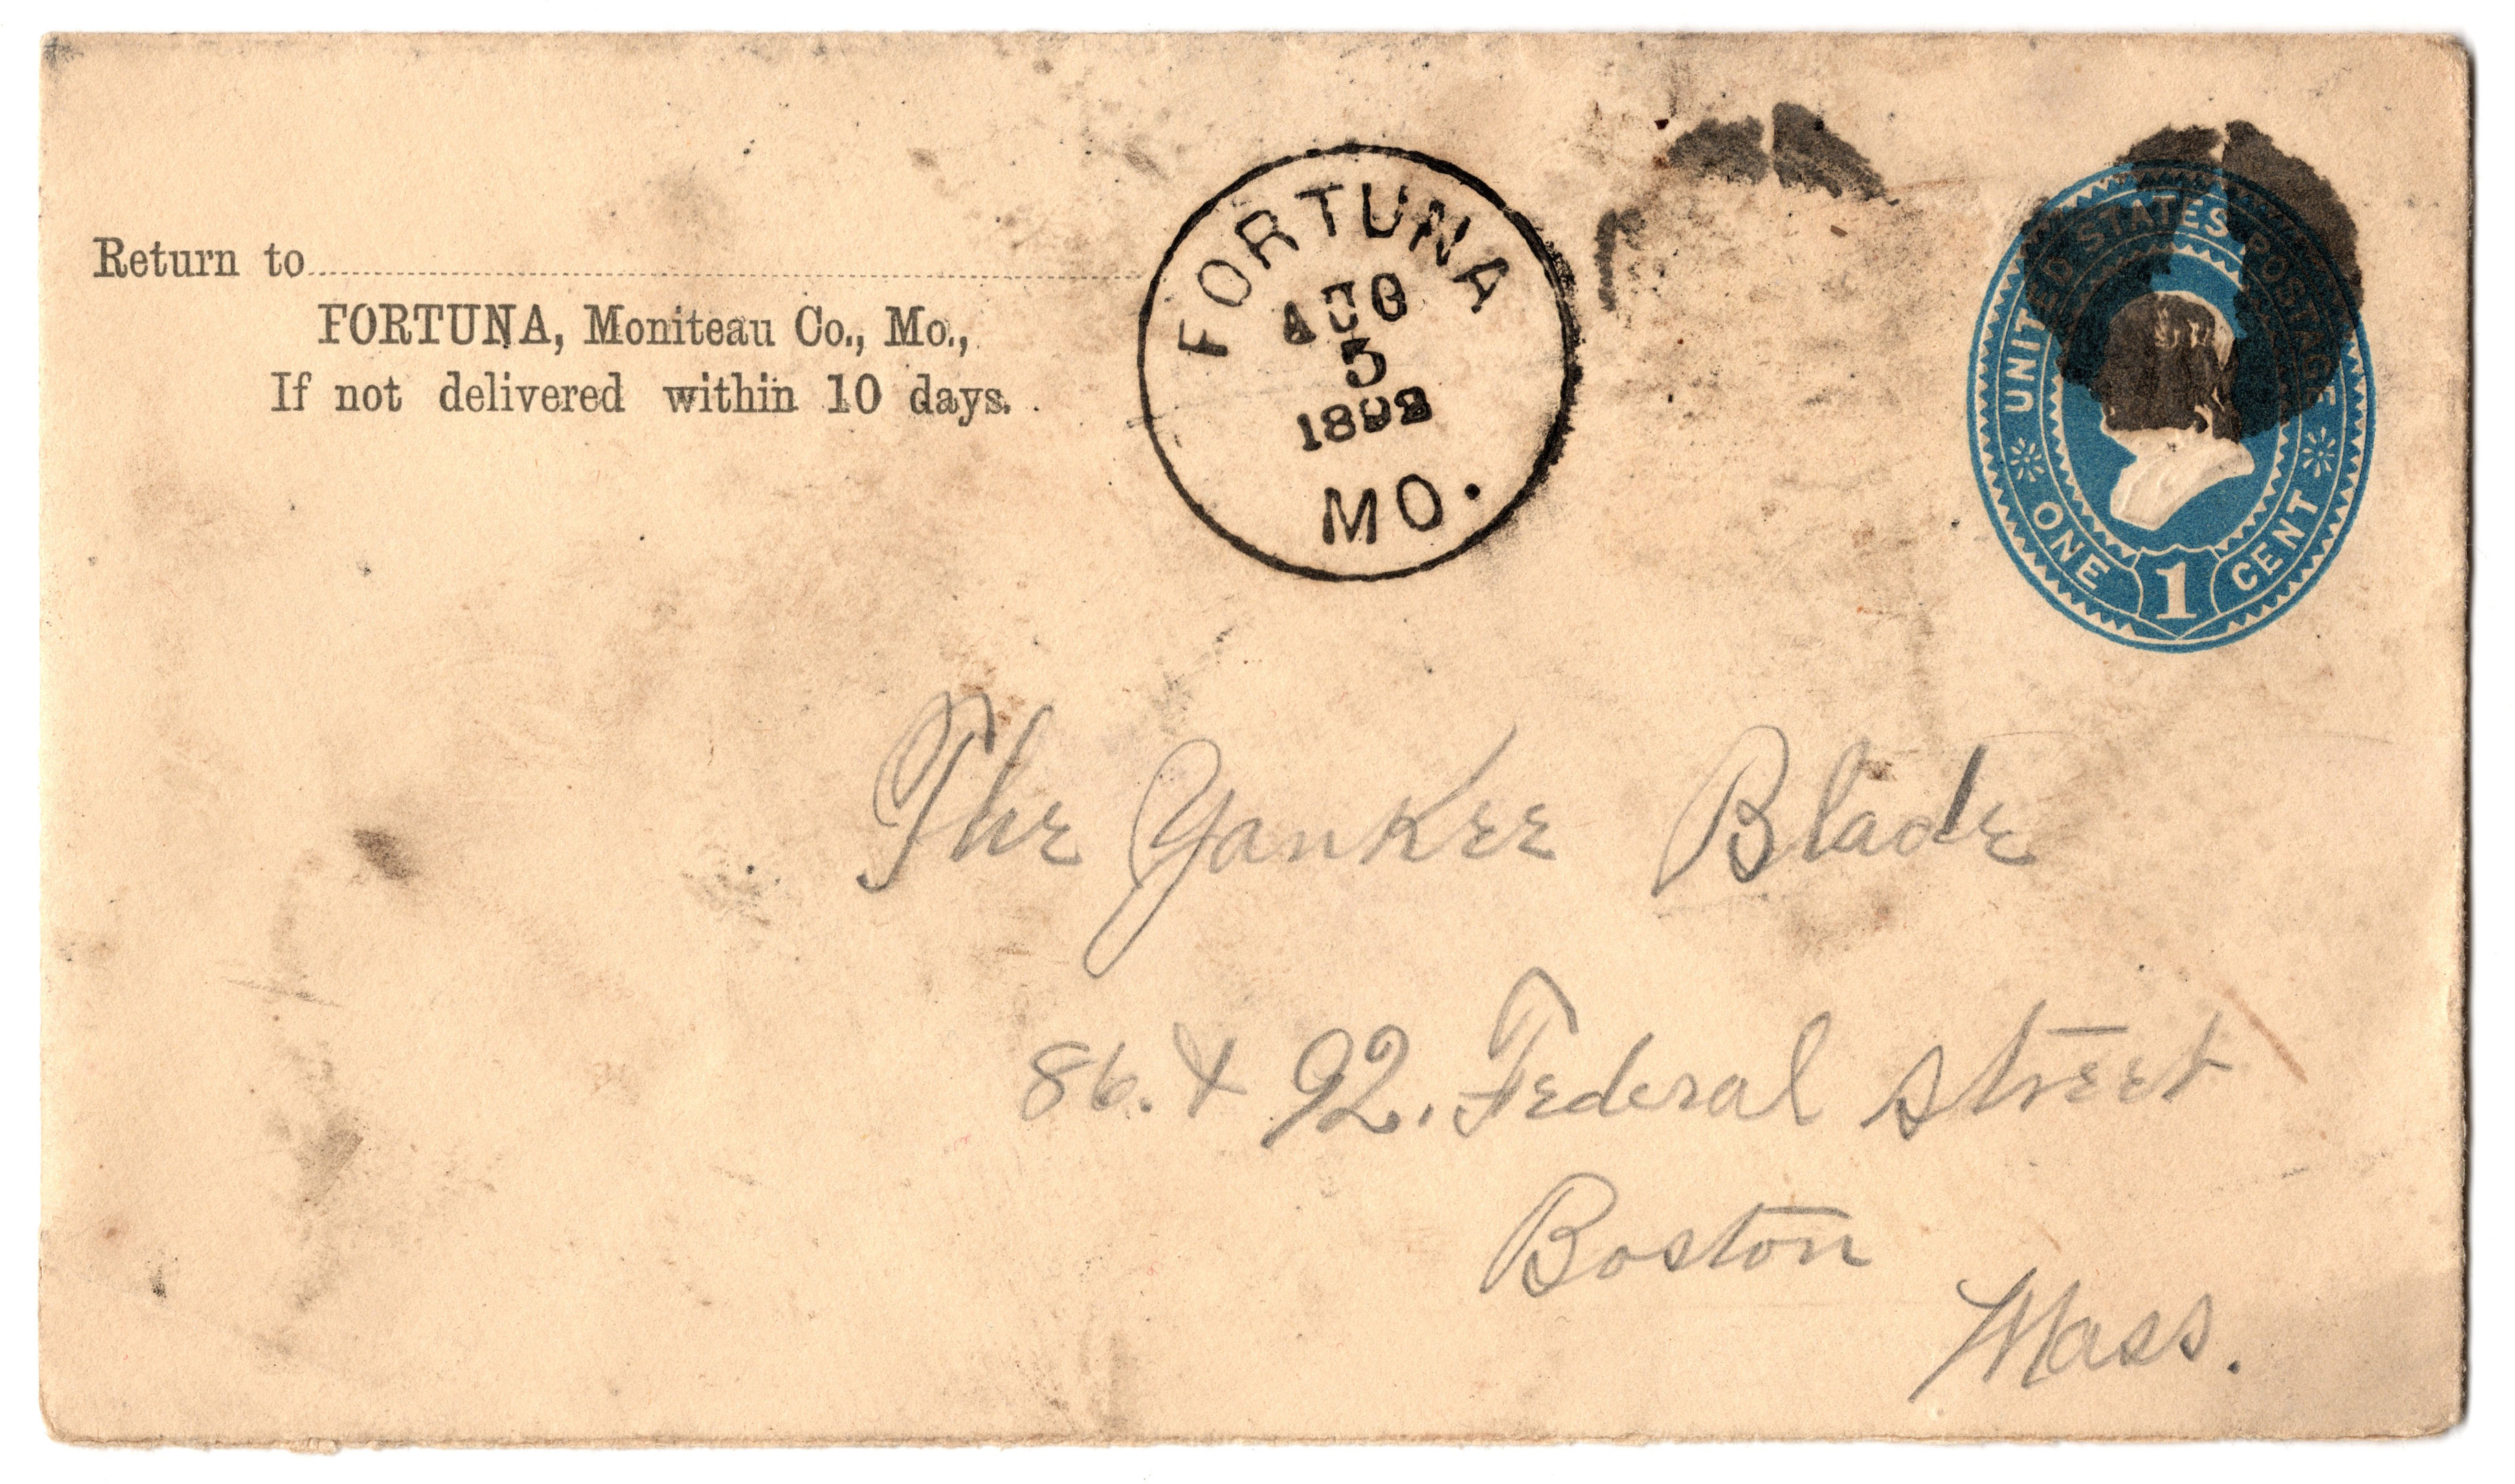 Return to
FORTUNA, Moniteau Co., Mo.,
If not delivered within 10 days.
FORTUNA
AUG
5
1892
MO.
UNITED STATES POSTAGE
ONE 1 CENT
The Yankee Blade
86. & 92. Federal street
Boston
Mass.